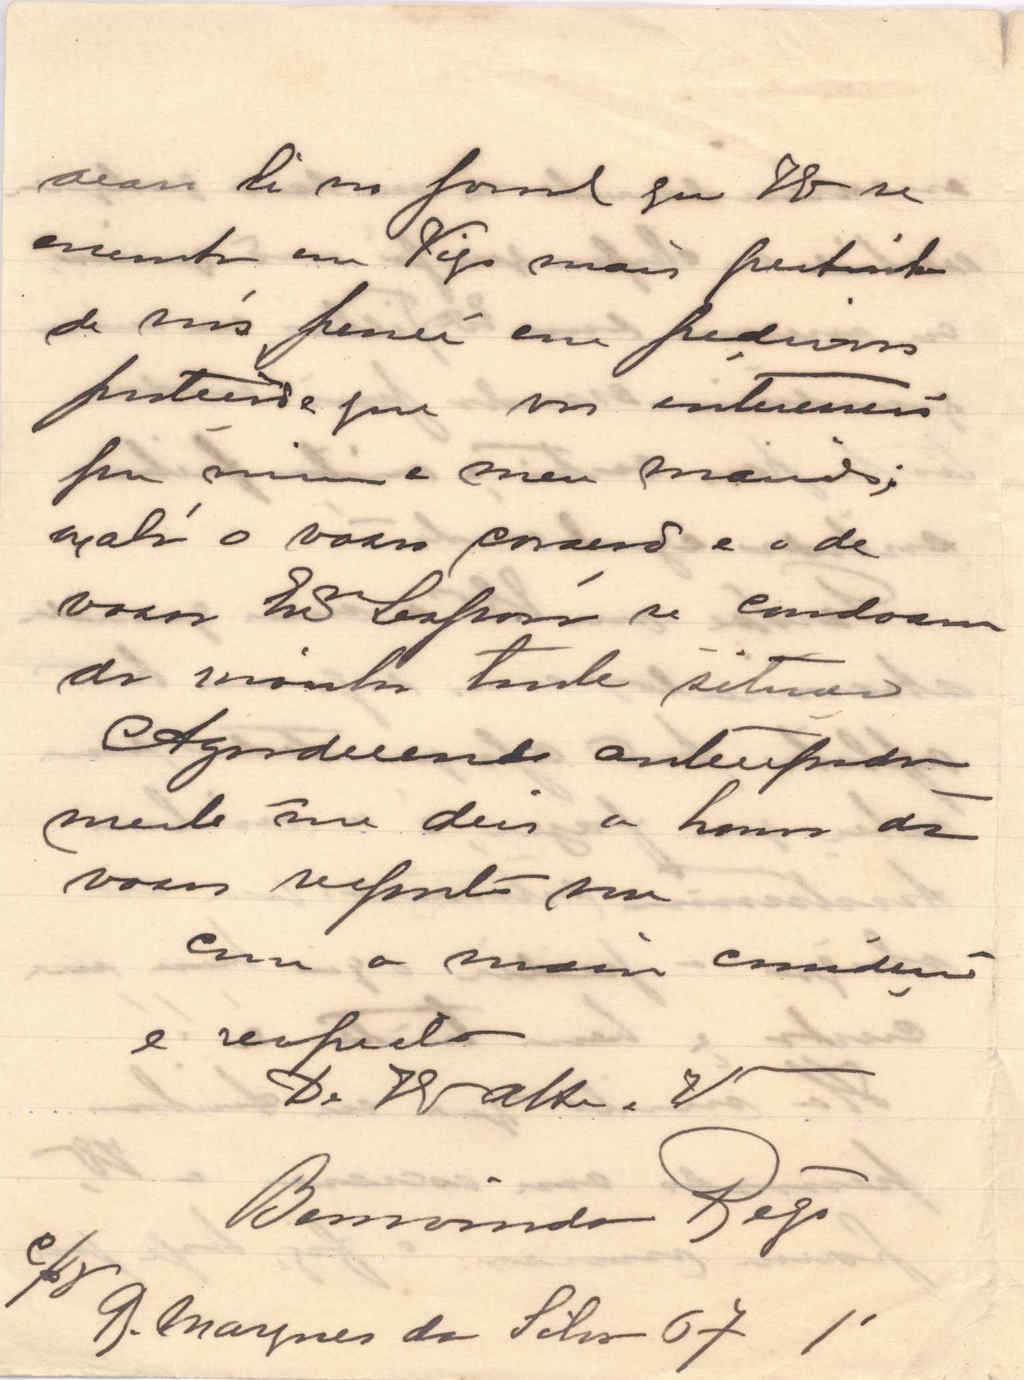 li no jornal que VE se
encontra em Vigo mais pertinho
de nós, pensei em pedirvos
protecção e que vos interesseis
por mim e meu marido;
oxalá o vosso coração e o de
vossa Exma se condoam
da minha triste situação
Agradecendo antecipada
mente me deis a honra da
vossa resposta sou
com a maior consideração
e respeito
De VE Atta. e V
Bemvinda Rêgo
R. Marques da Silva 67 1º